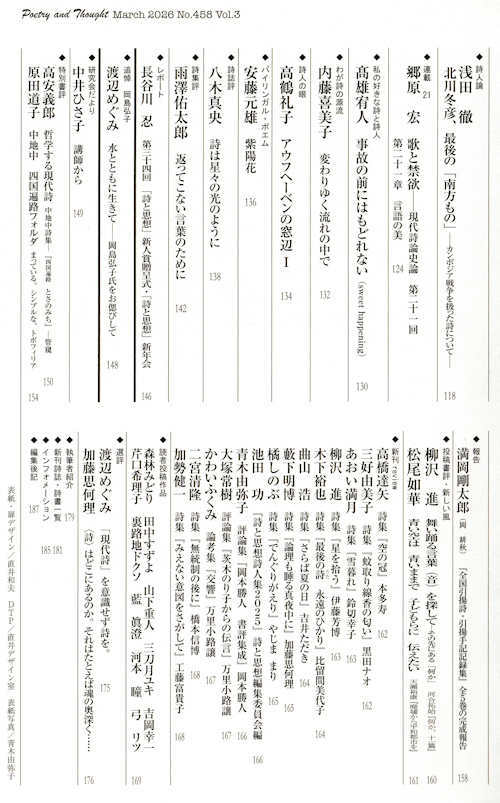 Poetry and Thought March 2026 No.458 Vol.3
◆詩人論
浅田 徹 北川冬彥、最後の「南方もの」──カンボジア戦争を扱った詩について── 118
◆連載 21
郷原 宏 歌と禁欲──現代詩論史論 第二十一回
第二十一章 言語の美 124
◆私の好きな詩と詩人
髙雄宥人 事故の前にはもどれない (sweet happening) 130
◆わが詩の源流
内藤喜美子 変わりゆく流れの中で 132
◆詩人の眼
高鶴礼子 アウフヘーベンの窓辺 Ⅰ 134
◆バイリンガル・ポエム
安藤元雄 紫陽花 136
◆詩誌評
八木真央 詩は星々の光のように 138
◆詩集評
雨澤佑太郎 返ってこない言葉のために 142
◆レポート
長谷川 忍 第三十四回「詩と思想」新人賞贈呈式・「詩と思想」新年会 146
◆追悼 岡島弘子
渡辺めぐみ 水とともに生きて──岡島弘子氏をお偲びして 148
◆研究会だより
中井ひさ子 講師から 149
◆特別書評
高安義郎 哲学する現代詩 中地中詩集──『四国遍路 とさのみち』──管窺 150
原田道子 中地中 四国遍路フォルダ まっている。シンプルな、トポフィリア 154
◆報告
満岡剛太郎（岡 耕秋）『全国引揚詩・引揚手記記録集』全5巻の完成報告 158
◆投稿書評・新しい風
柳沢 進 舞い踊る言葉〈音〉を探して その先にある「何か」 河合祐治『何か、十一篇』 160
松尾如華 青い空は 青いままで 子どもらに 伝えたい 大瀬裕康『廃墟から平和都市を』 161
◆新刊 review
高橋達矢 詩集『空の冠』本多寿 162
三好由美子 詩集『蚊取り線香の匂い』黒田ナオ 162
あおい満月 詩集『雪暮れ』鈴切幸子 163
柳沢 進 詩集『星を拾う』伊藤芳博 163
木下裕也 詩集『最後の詩 永遠のひかり』比留間美代子 164
曲山 浩 詩集『さらば夏の日』吉井ただき 164
藪下明博 詩集『論理も睡る真夜中に』加藤思何理 165
橘しのぶ 詩集『でんぐりがえり』やじま まり 165
池田 功 『詩と思想詩人集2025』詩と思想編集委員会編 166
青木由弥子 評論集『岡本勝人 書評集成』岡本勝人 166
大塚常樹 評論集『茨木のり子からの伝言』万里小路譲 167
かわいふくみ 論考集『交響』万里小路譲 167
二宮清隆 詩集『無統制の後に』橋本信博 168
加勢健一 詩集『みえない意図をさがして』工藤富貴子 168
◆読者投稿作品
森林みどり 田中すずよ 山下重人 三刀月ユキ 吉岡幸一
芹口希理子 裏路地ドクソ 藍 眞澄 河本 瞳 弓 リツ 169
◆選評
渡辺めぐみ 「現代詩」を意識せず詩を。 175
加藤思何理 〈詩〉はどこにあるのか。それはたとえば魂の奥深く…… 176
◆執筆者紹介 179
◆新刊詩誌・詩書一覧 181
◆インフォメーション 185
◆編集後記 187
表紙／扉デザイン／直井和夫 DTP／直井デザイン室 表紙写真／青木由弥子